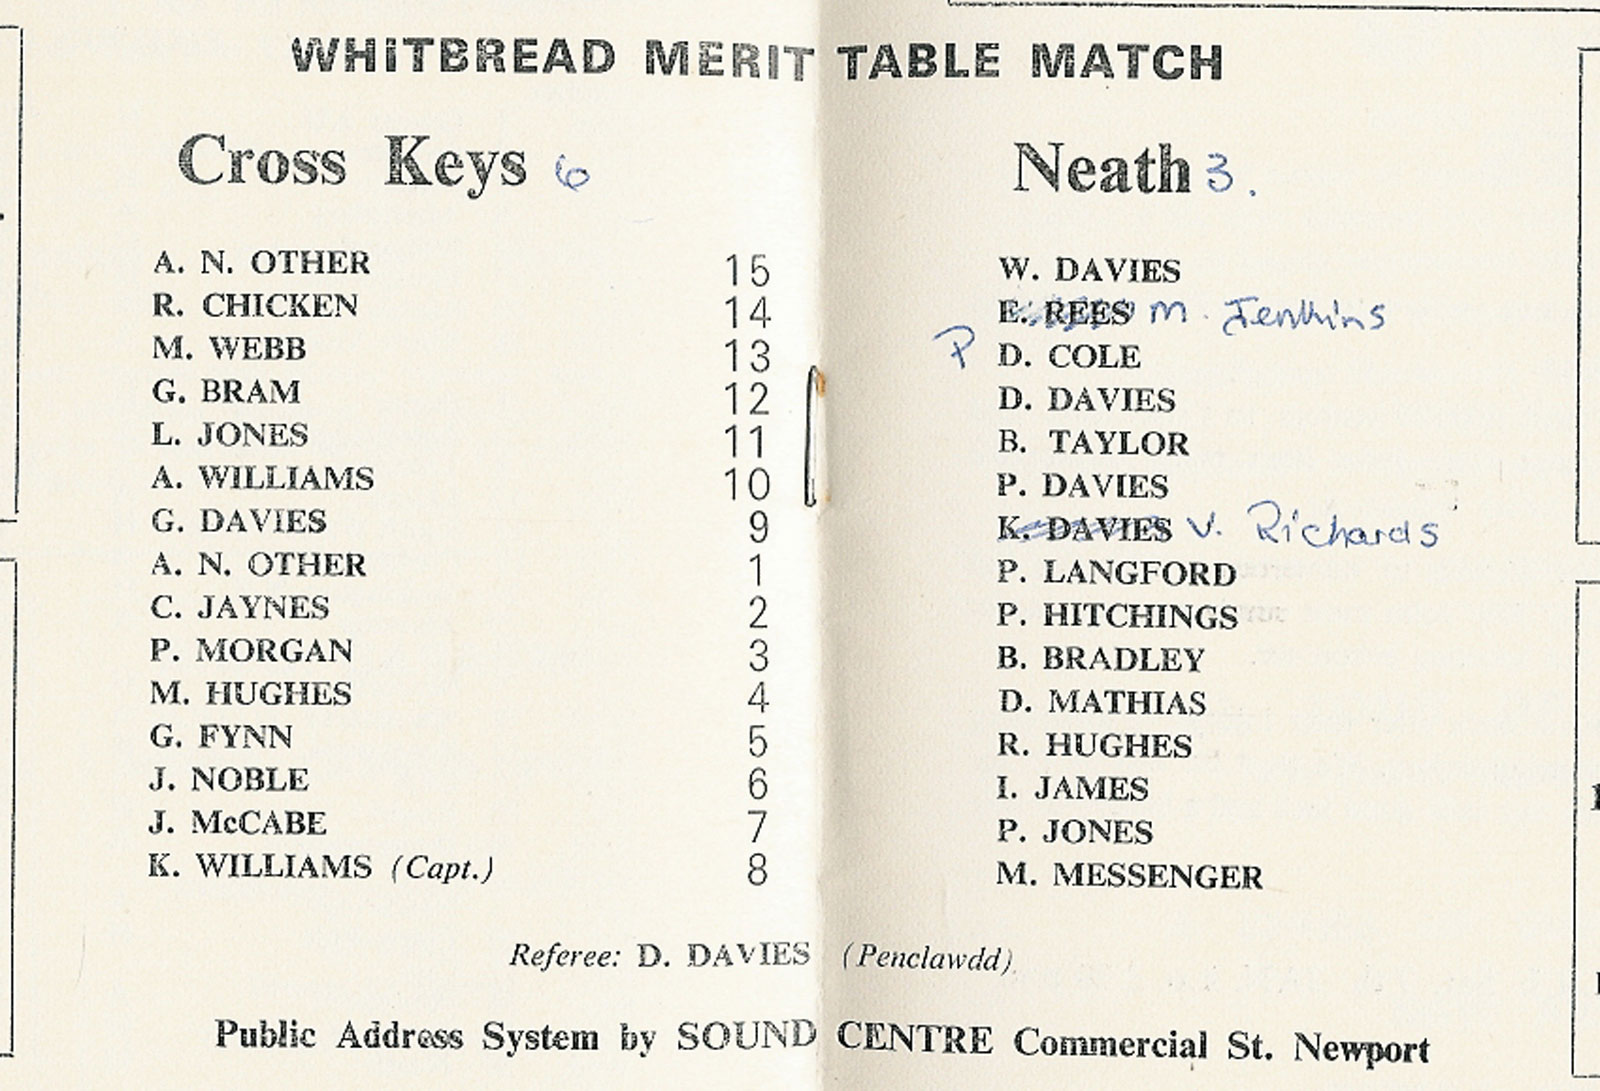 WHITBREAD MERIT TABLE MATCH
Cross Keys 6
Neath 3.
A. N. OTHER 15 W. DAVIES
R. CHICKEN 14 E. REES M. Jenkins
M. WEBB 13 P D. COLE
G. BRAM 12 D. DAVIES
L. JONES 11 B. TAYLOR
A. WILLIAMS 10 P. DAVIES
G. DAVIES 9 K. DAVIES V. Richards
A. N. OTHER 1 P. LANGFORD
C. JAYNES 2 P. HITCHINGS
P. MORGAN 3 B. BRADLEY
M. HUGHES 4 D. MATHIAS
G. FYNN 5 R. HUGHES
J. NOBLE 6 I. JAMES
J. McCABE 7 P. JONES
K. WILLIAMS (Capt.) 8 M. MESSENGER
Referee: D. DAVIES (Penclawdd)
Public Address System by SOUND CENTRE Commercial St. Newport